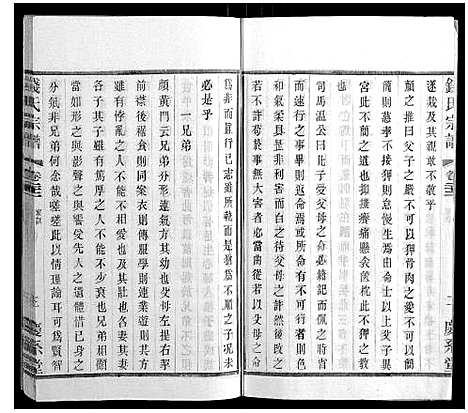 錢氏宗譜
卷三
二
慶系堂
顏之推曰父子之嚴不可以狎骨肉之愛不可以簡簡則
慈孝不接狎則怠慢生焉由命士以上父子異
宮此不狎之道也抑搔癢痛懸衾篋枕此不簡之教
也
司馬溫公曰凡子受父母之命必籍記而佩之時省
而速行之事畢則返命焉或所命有不可行者則
和氣柔聲具是非利害而白之待父母之許然後改之
若不許苟於事無大害者亦當曲從若以父母之命
為非而直行己志雖所執而是猶為不順之子況未
必是乎
一兄弟
顏黃門云兄弟分形連氣方其幼也父母左提右挈
前襟後裾食則同案衣則傳服學則連業遊則共方
雖有悖亂之人不能不相愛也及其壯也各妻其妻
各子其子雖有篤厚之人不能不少衰也兄弟相顧
當如形之與影聲之與響愛先人之遺體惜己身之
分氣非兄弟何念哉嗟嗟此以情理論耳可為賢智
錢氏宗譜
卷三
家訓
慶系堂